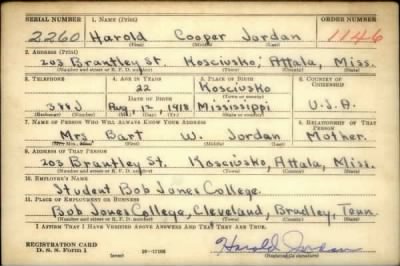 SERIAL NUMBER 1. NAME (Print) ORDER NUMBER
2260 Harold Cooper Jordan 1146
(First) (Middle) (Last)
2. ADDRESS (Print)
203 Brantley St. Kosciusko, Attala, Miss.
(Number and street or R. F. D. number) (Town) (County) (State)
3. TELEPHONE 4. AGE IN YEARS 5. PLACE OF BIRTH 6. COUNTRY OF CITIZENSHIP
22 Kosciusko
DATE OF BIRTH (Town or county)
388J Aug. 12, 1918 Mississippi U.S.A.
(Exchange) (Number) (Mo.) (Day) (Yr.) (State or country)
7. NAME OF PERSON WHO WILL ALWAYS KNOW YOUR ADDRESS 8. RELATIONSHIP OF THAT PERSON
Mrs Bart W. Jordan Mother.
(Mr., Mrs., Miss) (First) (Middle) (Last)
9. ADDRESS OF THAT PERSON
203 Brantley St. Kosciusko, Attala, Miss.
(Number and street or R. F. D. number) (Town) (County) (State)
10. EMPLOYER'S NAME
Student Bob Jones College.
11. PLACE OF EMPLOYMENT OR BUSINESS
Bob Jones College, Cleveland, Bradley, Tenn.
(Number and street or R. F. D. number) (Town) (County) (State)
I AFFIRM THAT I HAVE VERIFIED ABOVE ANSWERS AND THAT THEY ARE TRUE.
REGISTRATION CARD
D. S. S. Form 1 Harold Jordan
(Registrant's signature)